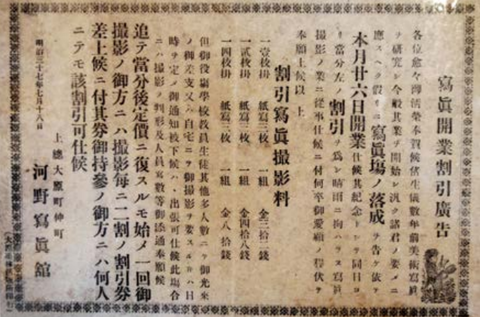 寫眞開業割引廣告
各位愈々御清榮奉賀候陳者當生儀數年前美術寫眞
ヲ研究シ今般其業ヲ開始シ汎ク諸君ノ需メニ
應スヘク假リニ寫眞場ノ落成ヲ告ケ依テ
本月廿六日開業仕候其紀念トシテ同日ヨ
リ當分左ノ割引ヲ爲シ晴雨ニ拘ハラス寫眞
撮影ノ業ニ從事仕候ニ付何卒御愛顧ノ程伏テ
奉願上候以上
割引寫眞撮影料
一壹枚掛 紙寫三枚 一組 金三拾錢
一貳枚掛 紙寫三枚 一組 金四拾八錢
一四枚掛 紙寫二枚 一組 金八拾錢
但御役場學校敎員生徒其他多人數ニテ御光來
ノ御差支又ハ自宅ニテ御撮影ヲ要スルキハ日
時ヲ定メ御通知被下候ハヽ出張可仕候此場合
ニハ撮影ノ判形及人員寫數等御添通奉願候
追テ當分後定價ニ復スルモ始メ一回御
撮影ノ御方ニハ撮影每ニ二割ノ割引券
差上候ニ付其券御持參ノ御方ニハ何人
ニテモ該割引可仕候
明治三十七年七月十八日
上總大原町仲町
河野寫眞舘